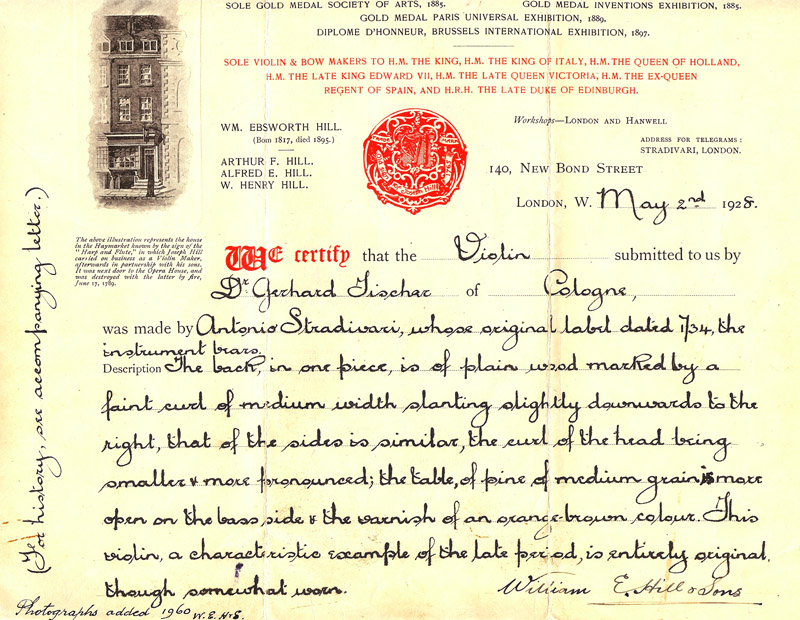 SOLE GOLD MEDAL SOCIETY OF ARTS, 1885. GOLD MEDAL INVENTIONS EXHIBITION, 1885.
GOLD MEDAL PARIS UNIVERSAL EXHIBITION, 1889.
DIPLOME D'HONNEUR, BRUSSELS INTERNATIONAL EXHIBITION, 1897.
SOLE VIOLIN & BOW MAKERS TO H.M. THE KING, H.M. THE KING OF ITALY, H.M. THE QUEEN OF HOLLAND,
H.M. THE LATE KING EDWARD VII, H.M. THE LATE QUEEN VICTORIA, H.M. THE EX-QUEEN
REGENT OF SPAIN, AND H.R.H. THE LATE DUKE OF EDINBURGH.
WM. EBSWORTH HILL.
(Born 1817, died 1895.)
ARTHUR F. HILL.
ALFRED E. HILL.
W. HENRY HILL.
TRADE MARK
Joseph Hill
Workshops—LONDON AND HANWELL
ADDRESS FOR TELEGRAMS:
STRADIVARI, LONDON.
140, NEW BOND STREET
LONDON, W. May 2nd 1928.
The above illustration represents the house
in the Haymarket known by the sign of the
"Harp and Flute," in which Joseph Hill
carried on business as a Violin Maker,
afterwards in partnership with his sons.
It was next door to the Opera House, and
was destroyed with the latter by fire,
June 17, 1789.
WE certify that the Violin submitted to us by
Dr. Gerhard Fischer of Cologne,
was made by Antonio Stradivari, whose original label dated 1734, the
instrument bears.
Description The back, in one piece, is of plain wood marked by a
faint curl of medium width slanting slightly downwards to the
right, that of the sides is similar, the curl of the head being
smaller & more pronounced; the table, of pine of medium grain is more
open on the bass side & the varnish of an orange-brown colour. This
violin, a characteristic example of the late period, is entirely original,
though somewhat worn.
William E. Hill & Sons
(For history, see accompanying letter.)
Photographs added 1960 W.E.H&S.